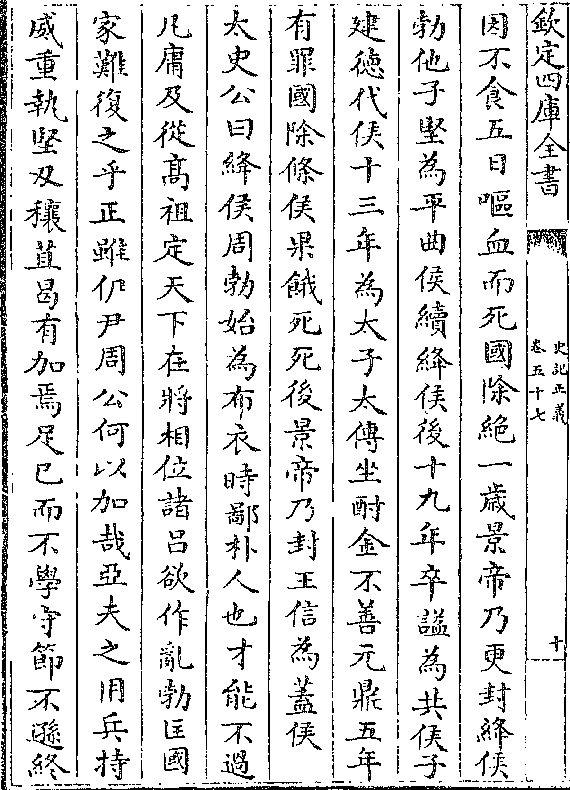 欽定四庫全書
史記正義
卷五十七
十
因不食五日嘔血而死國除絶一歳景帝乃更封絳侯
勃他子堅為平曲侯續絳侯後十九年卒諡為共侯子
建德代侯十三年為太子太傅坐酎金不善元鼎五年
有罪國除條侯果餓死死後景帝乃封王信為蓋侯
太史公曰絳侯周勃始為布衣時鄙朴人也才能不過
凡庸及從髙祖定天下在將相位諸吕欲作亂勃匡國
家難復之乎正雖伊尹周公何以加哉亞夫之用兵持
威重執堅刄穰苴曷有加焉足已而不學守節不遜終